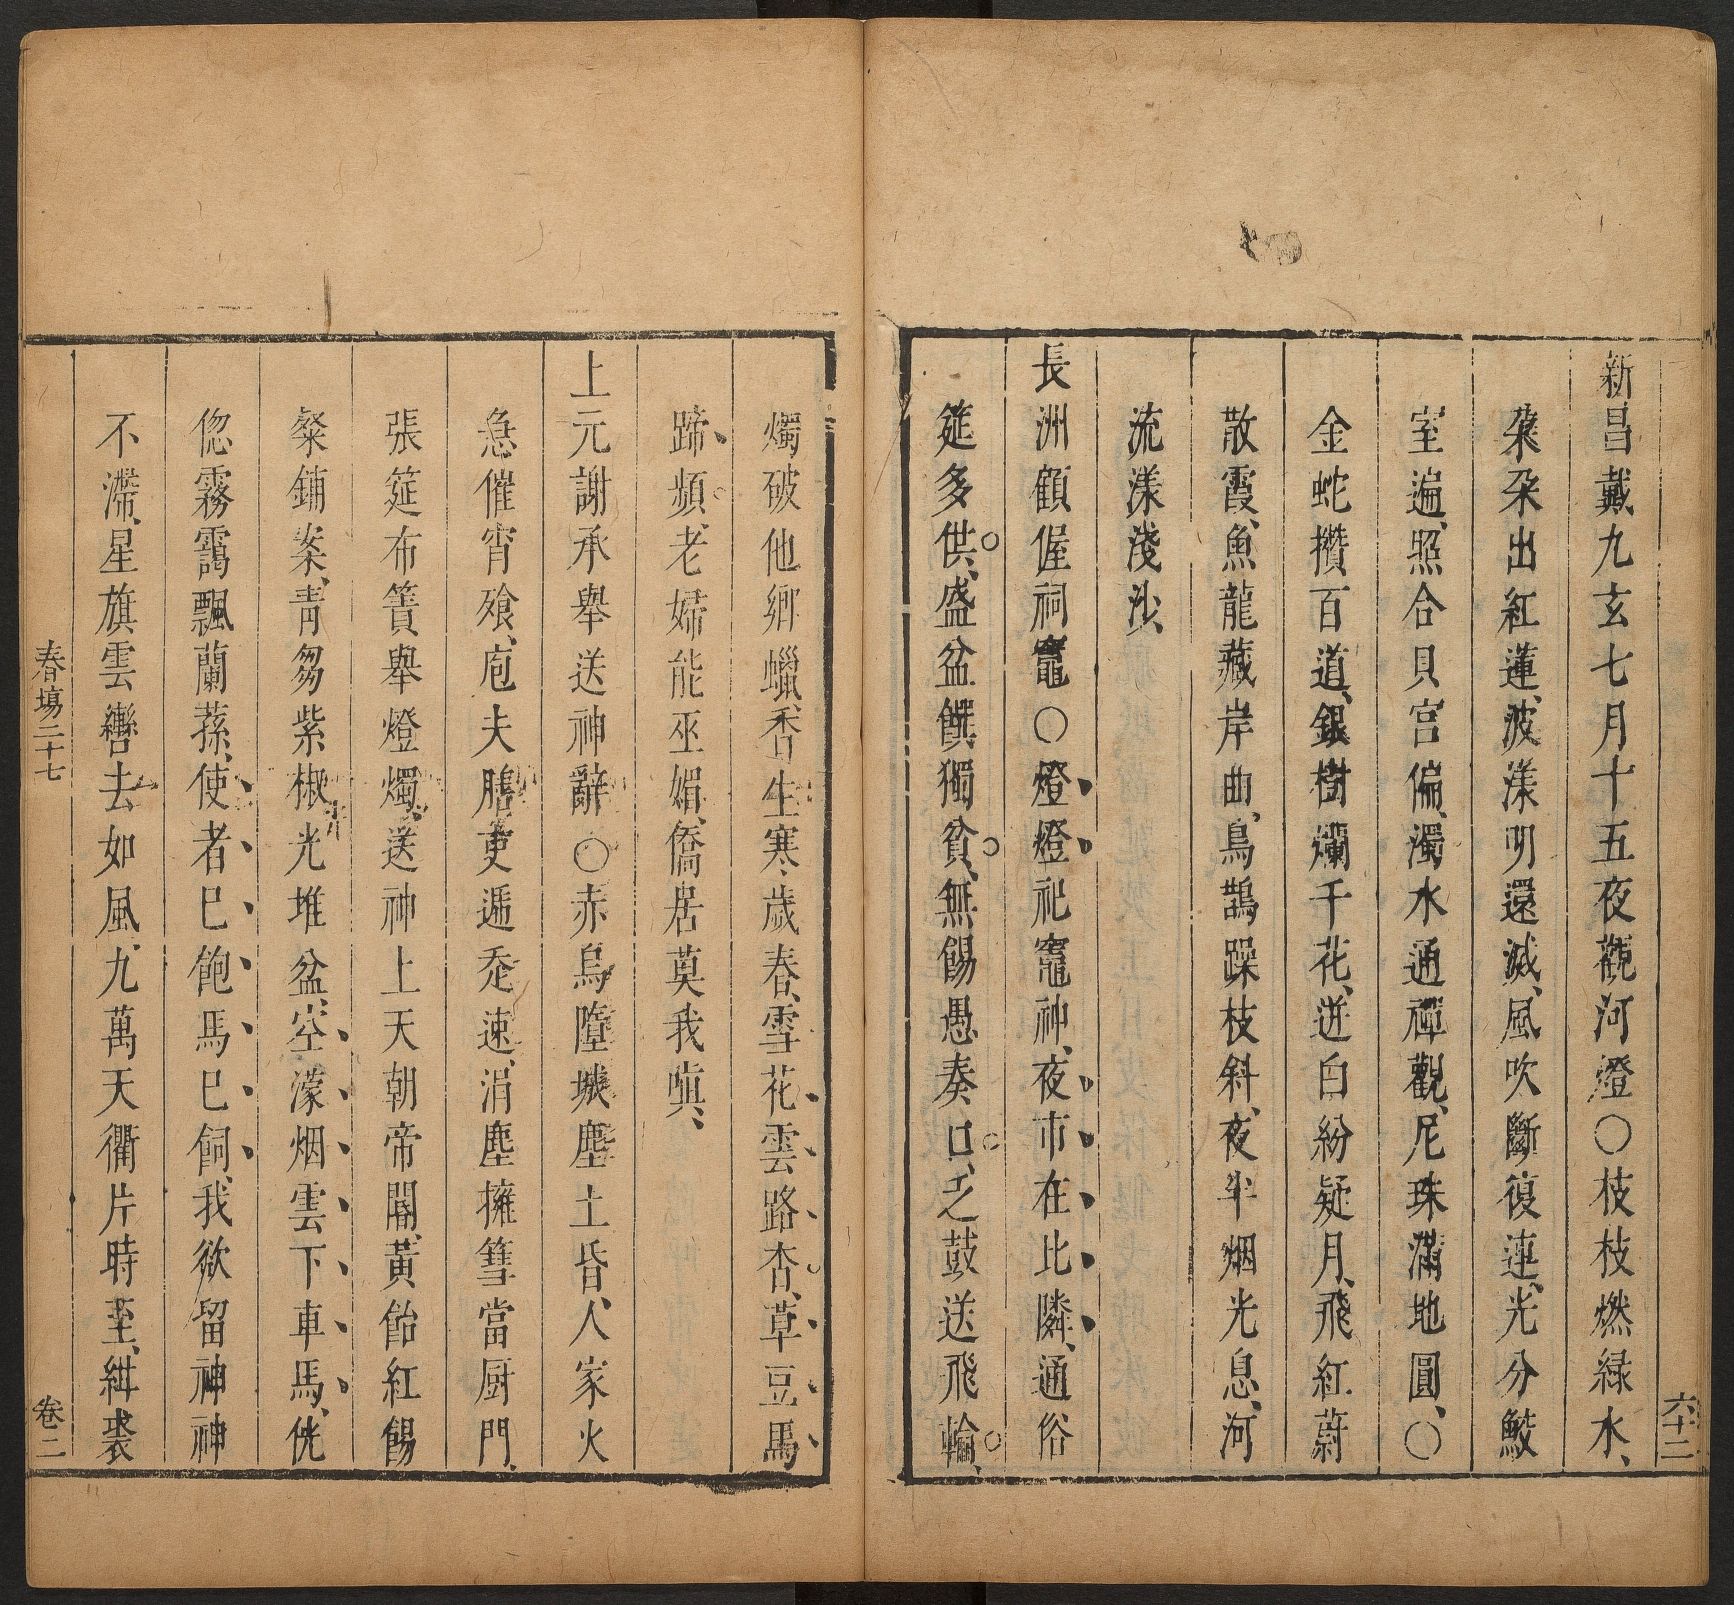 六十二
新昌戴九玄七月十五夜觀河燈〇枝枝燃緑水、
朶朶出紅蓮、波漾明還滅、風吹斷復連、光分鮫
室遍、照合貝宮偏、濁水通禪觀、尼珠滿地圓、〇
金蛇攢百道、銀樹爛千花、迸白紛疑月、飛紅蔚
散霞、魚龍藏岸曲、鳥鵲躁枝斜、夜半烟光息、河
流漾淺沙、
長洲顧偓祠竈〇燈燈祀竈神、夜市在比隣、通俗
筵多供、盛盆饌獨貧、無餳愚奏口、乏鼓送飛輪、
燭破他鄉蠟、香生寒歲春、雪花雲路杳、草豆馬
蹄頻、老婦能巫媚、僑居莫我嗔、
上元謝承舉送神辭〇赤烏墮城塵土昏、人家火
急催宵飱、庖夫膳吏遞走速、涓塵擁篲當厨門、
張筵布簀舉燈燭、送神上天朝帝閽、黃飴紅餳
粲鋪案、青芻紫椒光堆盆、空濛烟雲下車馬、恍
惚霧靄飄蘭蓀、使者已飽馬已飼、我欲留神神
不滯、星旗雲轡去如風、九萬天衢片時至、紺裘
春場二十七
卷二